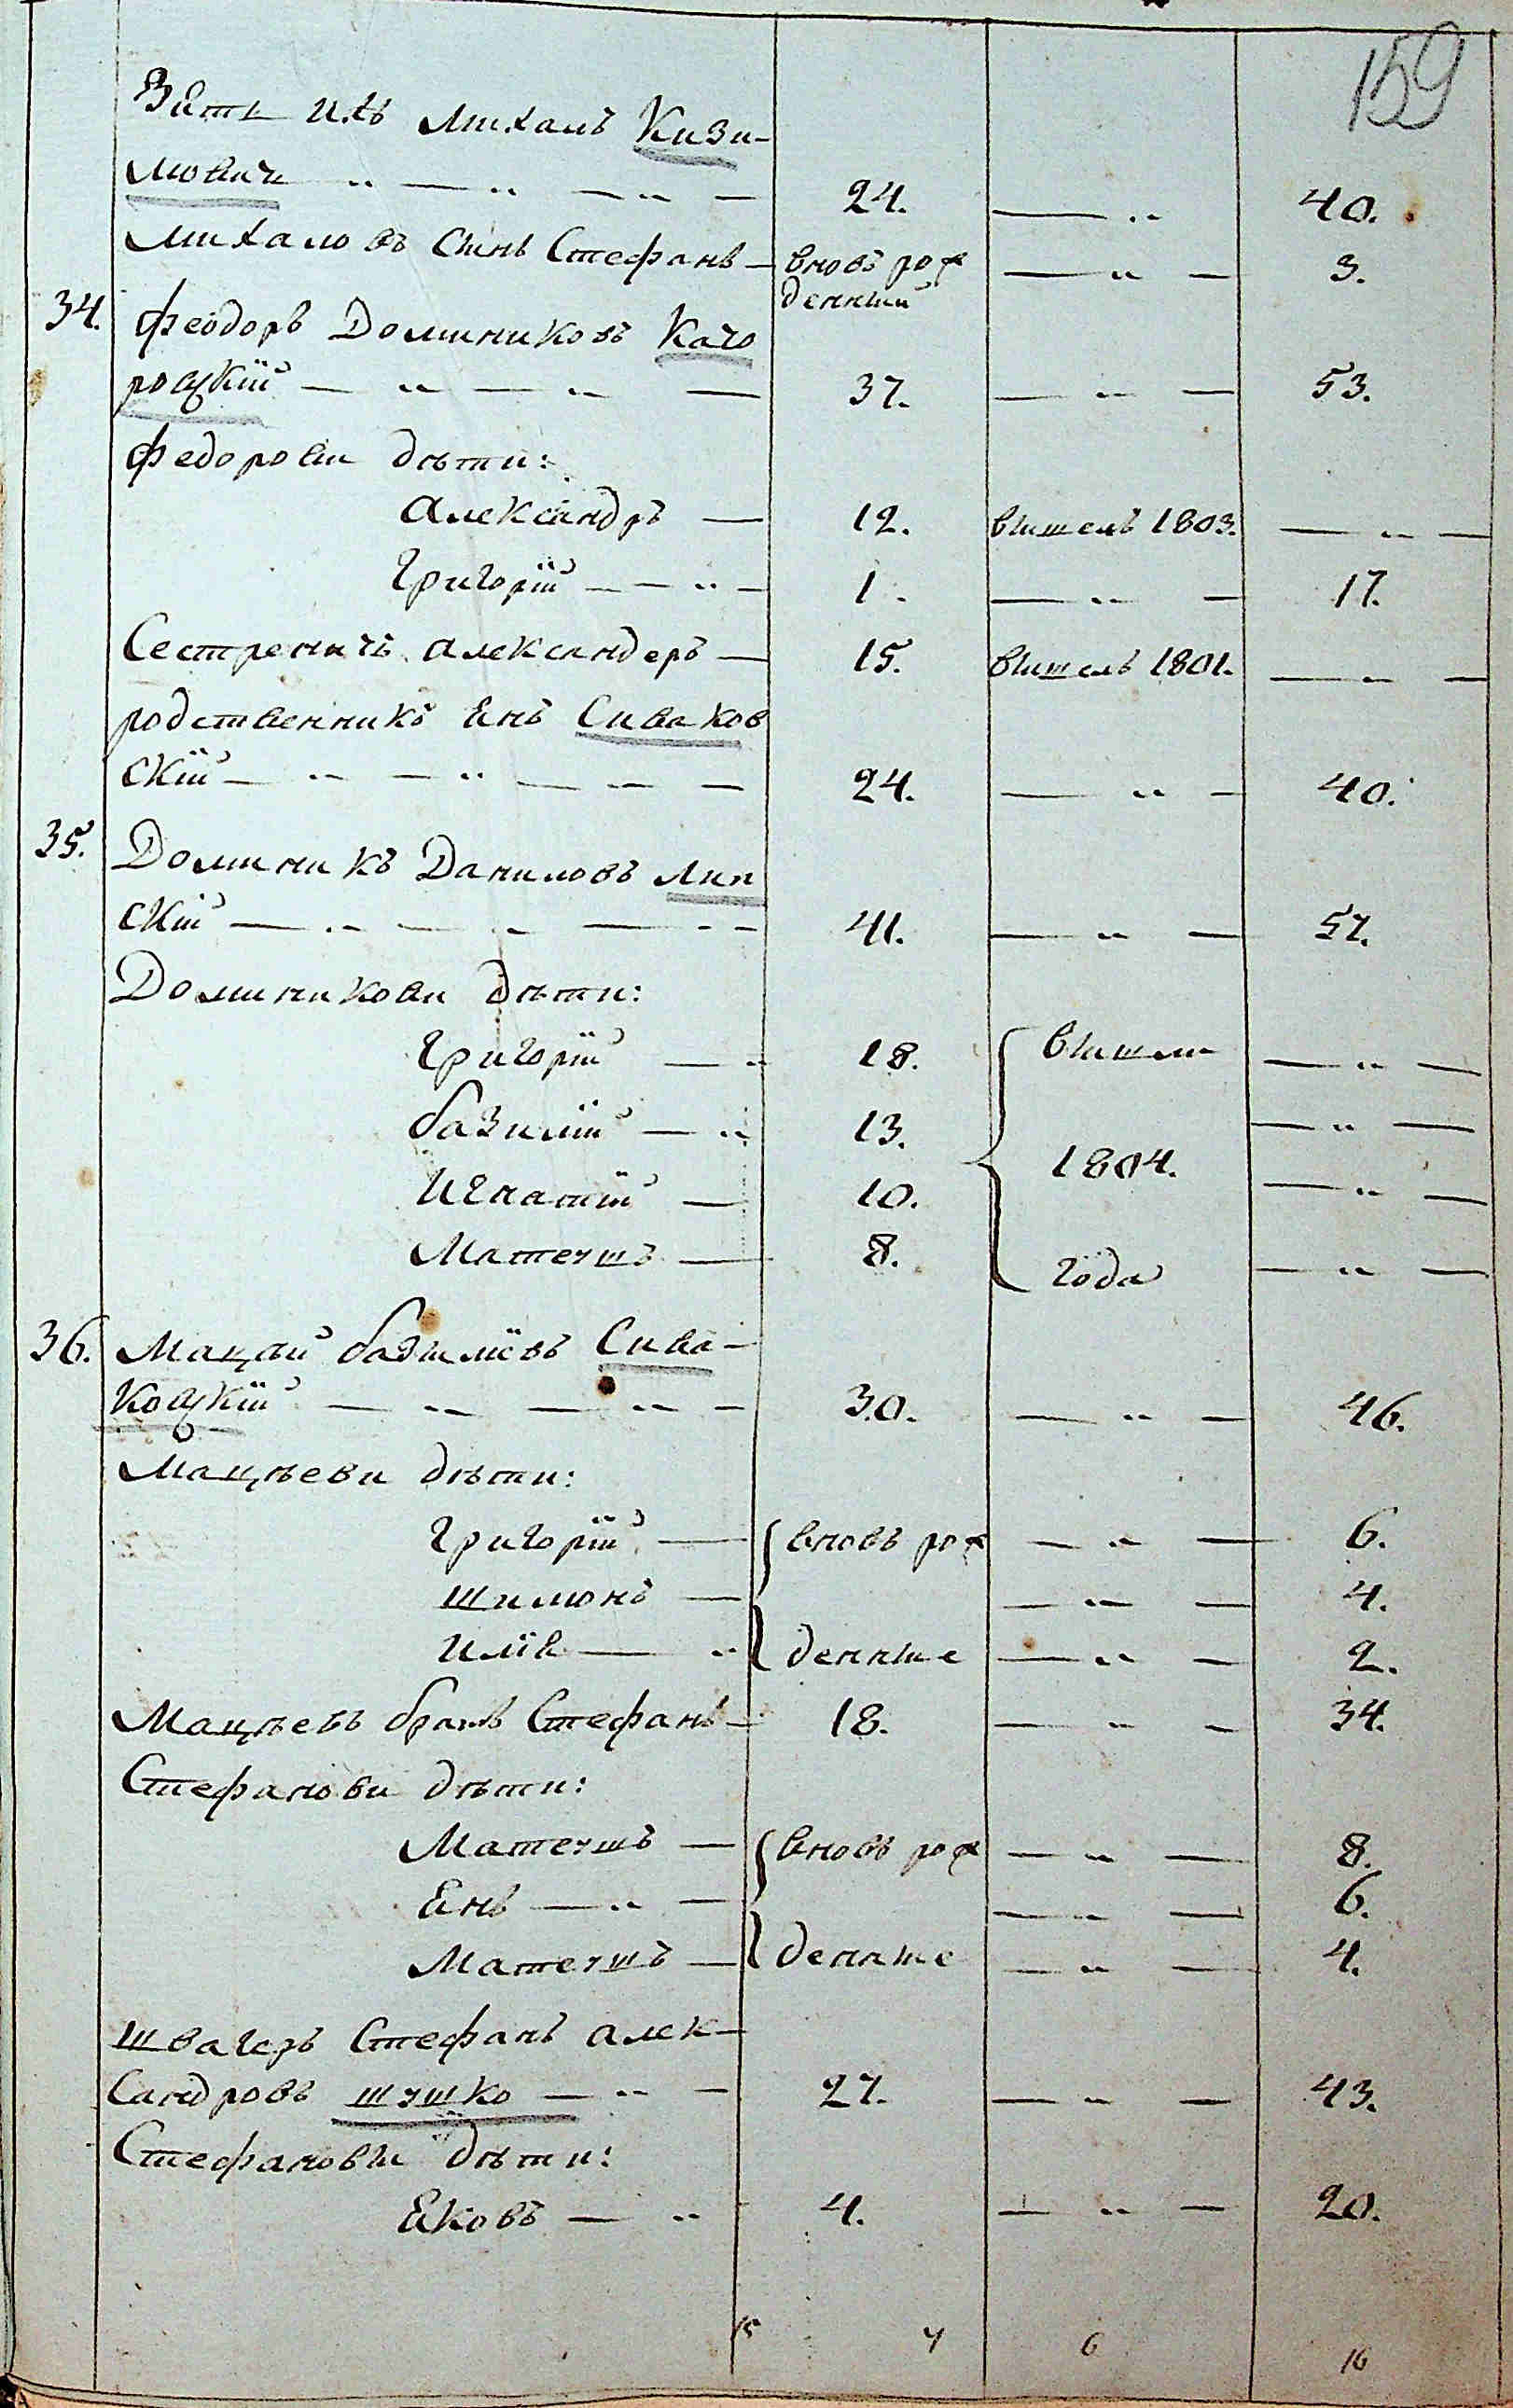 159
Зять ихъ Михалъ Кизи-
мовичъ 24. 40.
Михаловъ Сынъ Стефанъ вновь рож 3.
денный
34. Феодоръ Доминиковъ Каго
ровскій 37. 53.
Федоровы дѣти:
Александръ 12. вышелъ 1803.
Григорій 1. 17.
Сестреничъ Александеръ 15. вышелъ 1801.
родственникъ Янъ Сиваков
скій 24. 40.
35. Доминикъ Даниловъ Лип
скій 41. 57.
Доминикови дѣти:
Григорій 18. вышли
базилій 13.
1804.
Игнатій 10.
Матеушъ 8. года
36. Мацѣй базиліовъ Сива-
ковскій 30. 46.
Мацѣеви дѣти:
Григорій вновь рож 6.
Шимонъ 4.
Илія денные 2.
Мацѣевъ братъ Стефанъ 18. 34.
Стефанови дѣти:
Матеушъ вновь рож 8.
Янъ 6.
Матеушъ денные 4.
Швагеръ Стефанъ Алек-
сандровъ Шушко 27. 43.
Стефановы дѣти:
Яковъ 4. 20.
15 4 6 16